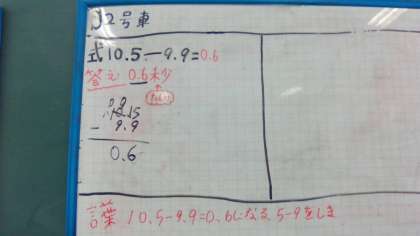 J2号車
式10.5-9.9=0.6
答え 0.6秒
10.5
- 9.9
0.6
言葉 10.5-9.9=0.6になる 5-9をしま